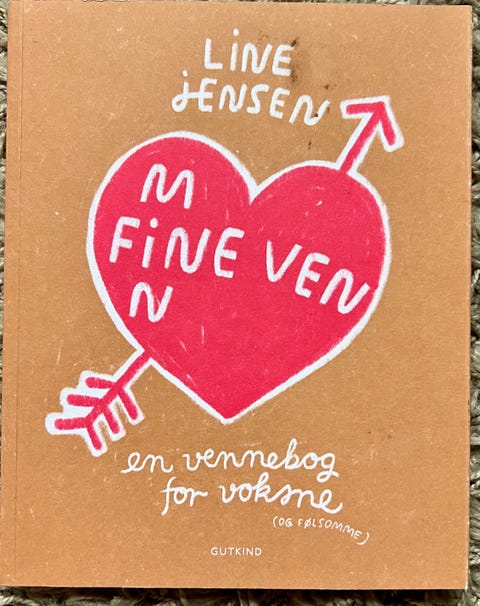 LiNE
jENSEN
M
FiNE VEN
N
en vennebog
for voksne
(OG FØLSOMME)
GUTKIND